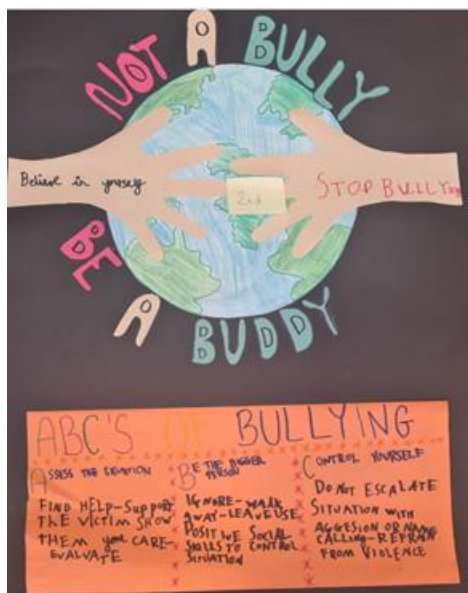 NOT A BULLY
Believe in yourself
2nd
STOP BULLYING
BE A BUDDY
ABC'S OF BULLYING
ASSESS THE SITUATION
FIND HELP-SUPPORT
THE VICTIM SHOW
THEM YOU CARE-
EVALUATE
BE THE BIGGER
PERSON
IGNORE-WALK
AWAY-LEAVE USE
POSITIVE SOCIAL
SKILLS TO CONTROL
SITUATION
CONTROL YOURSELF
DO NOT ESCALATE
SITUATION WITH
AGGESION OR NAME
CALLING-REFRAIN
FROM VIOLENCE